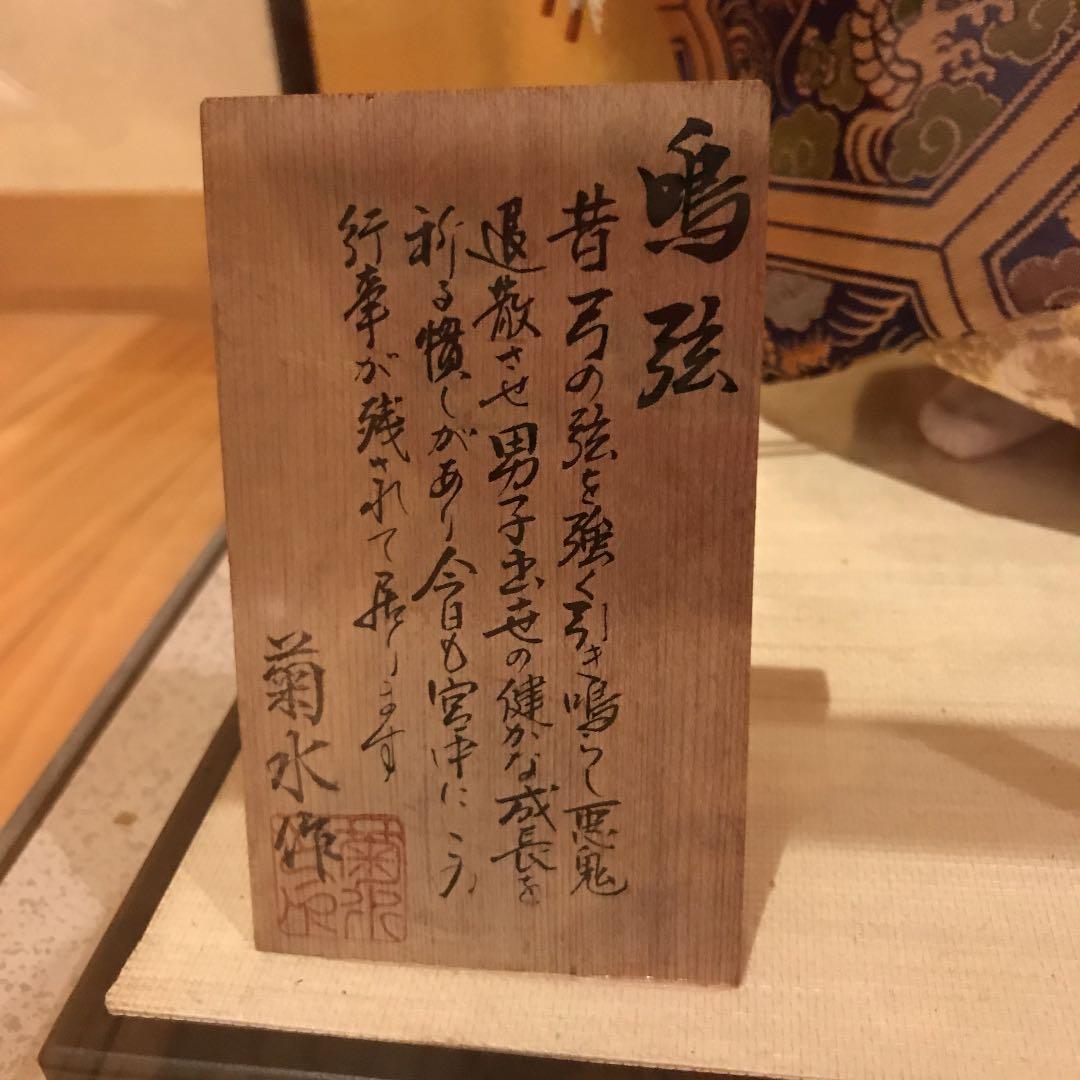 鳴弦
昔弓の弦を強く引き鳴らし悪鬼
退散させ男子出世の健かな成長を
祈る慣しがあり今日も宮中にこの
行事が残されて居ります
菊水作
菊水